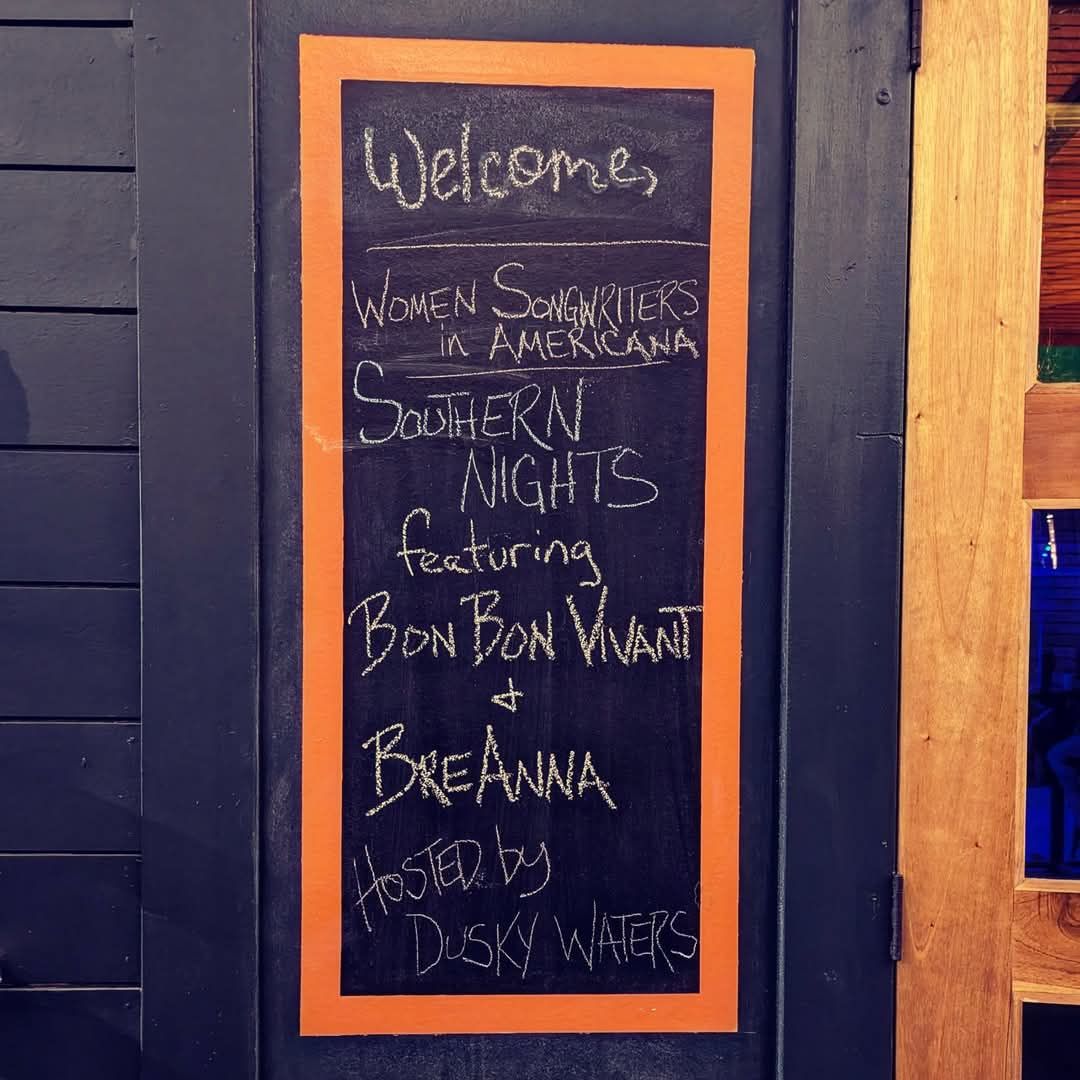 Welcome,
WOMEN SONGWRITERS
in AMERICANA
SOUTHERN
NIGHTS
featuring
BON BON VIVANT
&
BREANNA
HOSTED by
DUSKY WATERS